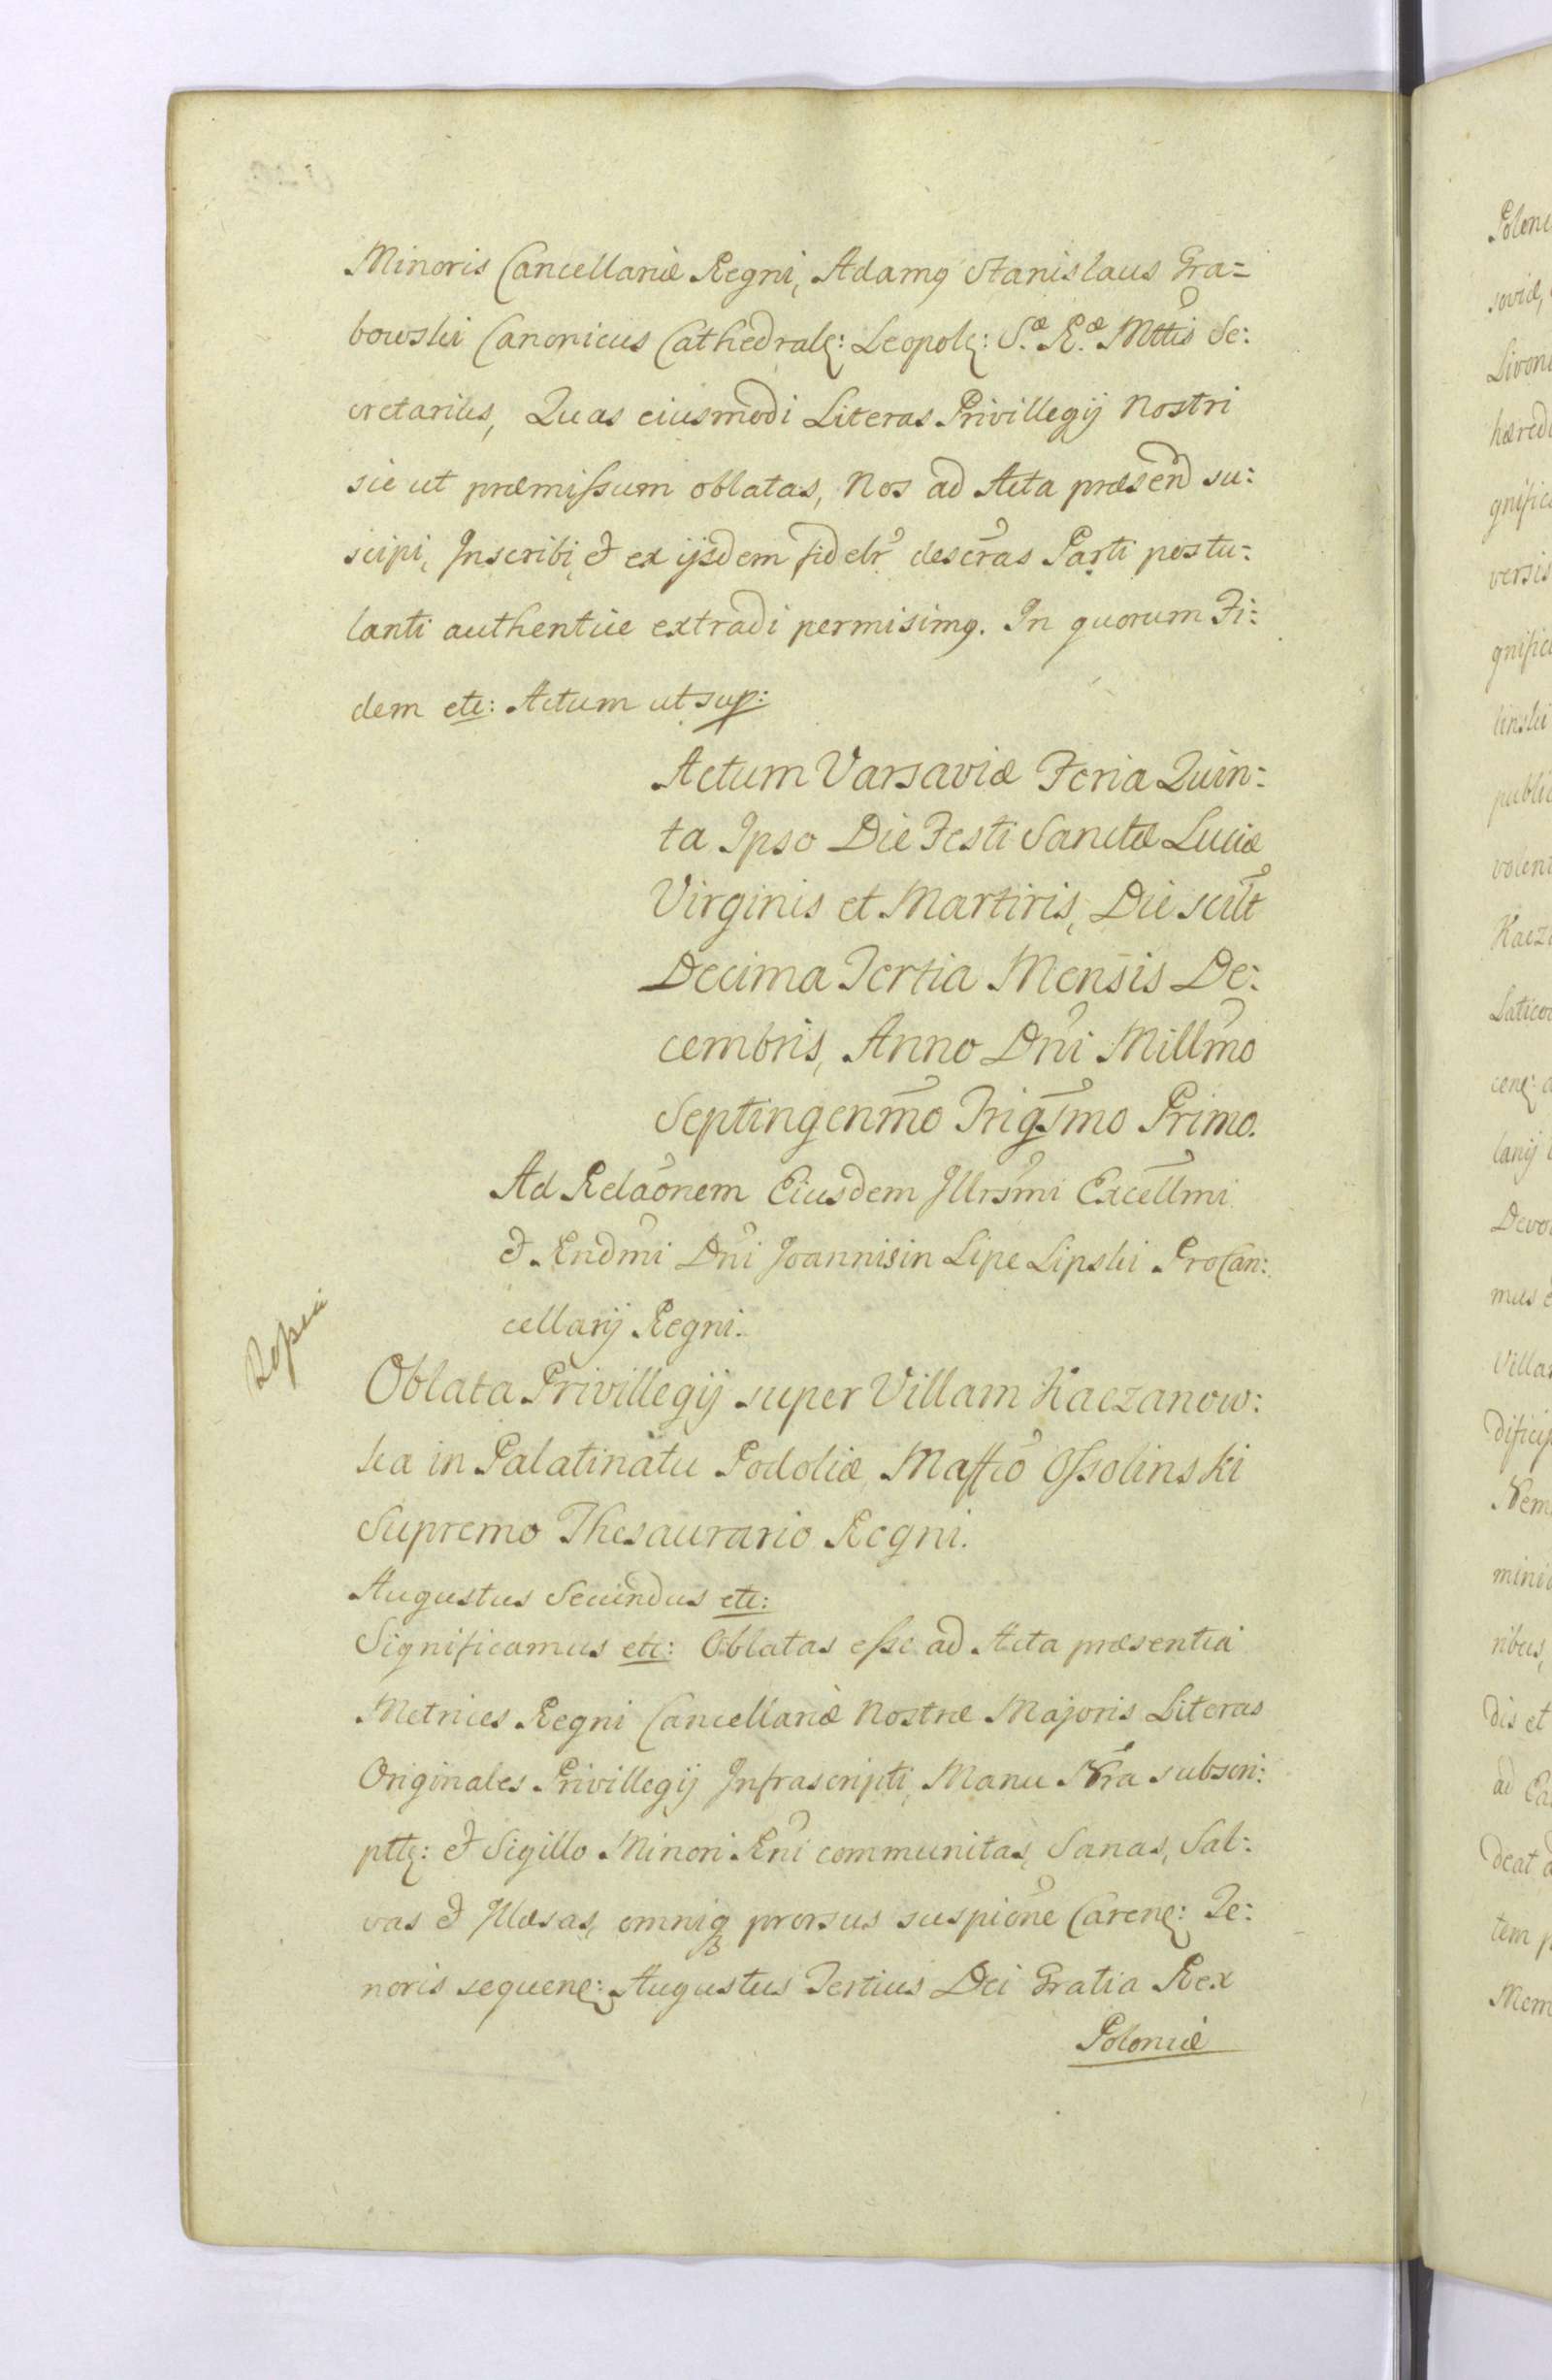 Minoris Cancellariæ Regni, Adamq Stanislaus Gra=
bowski Canonicus Cathedralę: Leopolę: S.æ R.æ Mttis Se:
cretarius, Quas eiusmodi Literas Privillegij Nostri
sic ut præmissum oblatas, Nos ad Acta præsend su:
scipi, Inscribi, et ex ijsdem fidelr descras Parti postu:
lanti authentice extradi permisimq. In quorum Fi:
dem etc: Actum ut sup:
Actum Varsaviæ Feria Quin:
ta Ipso Die Festi Sanctæ Luciæ
Virginis et Martiris, Die scilt
Decima Tertia Mensis De:
cembris, Anno Dni Millmo
Septingenmo Trigsmo Primo.
Ad Relaonem Eiusdem Illrsmi Excellmi
et Rndmi Dni Joannis in Lipe Lipski ProCan:
cellarij Regni.
Oblata Privillegij super Villam Kaczanow:
ka in Palatinatu Podoliæ, Mffco Ossolinski
Supremo Thesaurario Regni.
Augustus Secundus etc:
Significamus etc: Oblatas esse ad Acta præsentia
Metrices Regni Cancellariæ Nostræ Majoris Literas
Originales Privillegij Infrascripti, Manu Nra subscri:
pttę: et Sigillo Minori Rni communitas, Sanas, Sal:
vas et Illæsas, omniq prorsus suspione Carenę: Te:
noris sequenę: Augustus Tertius Dei Gratia Rex
Poloniæ